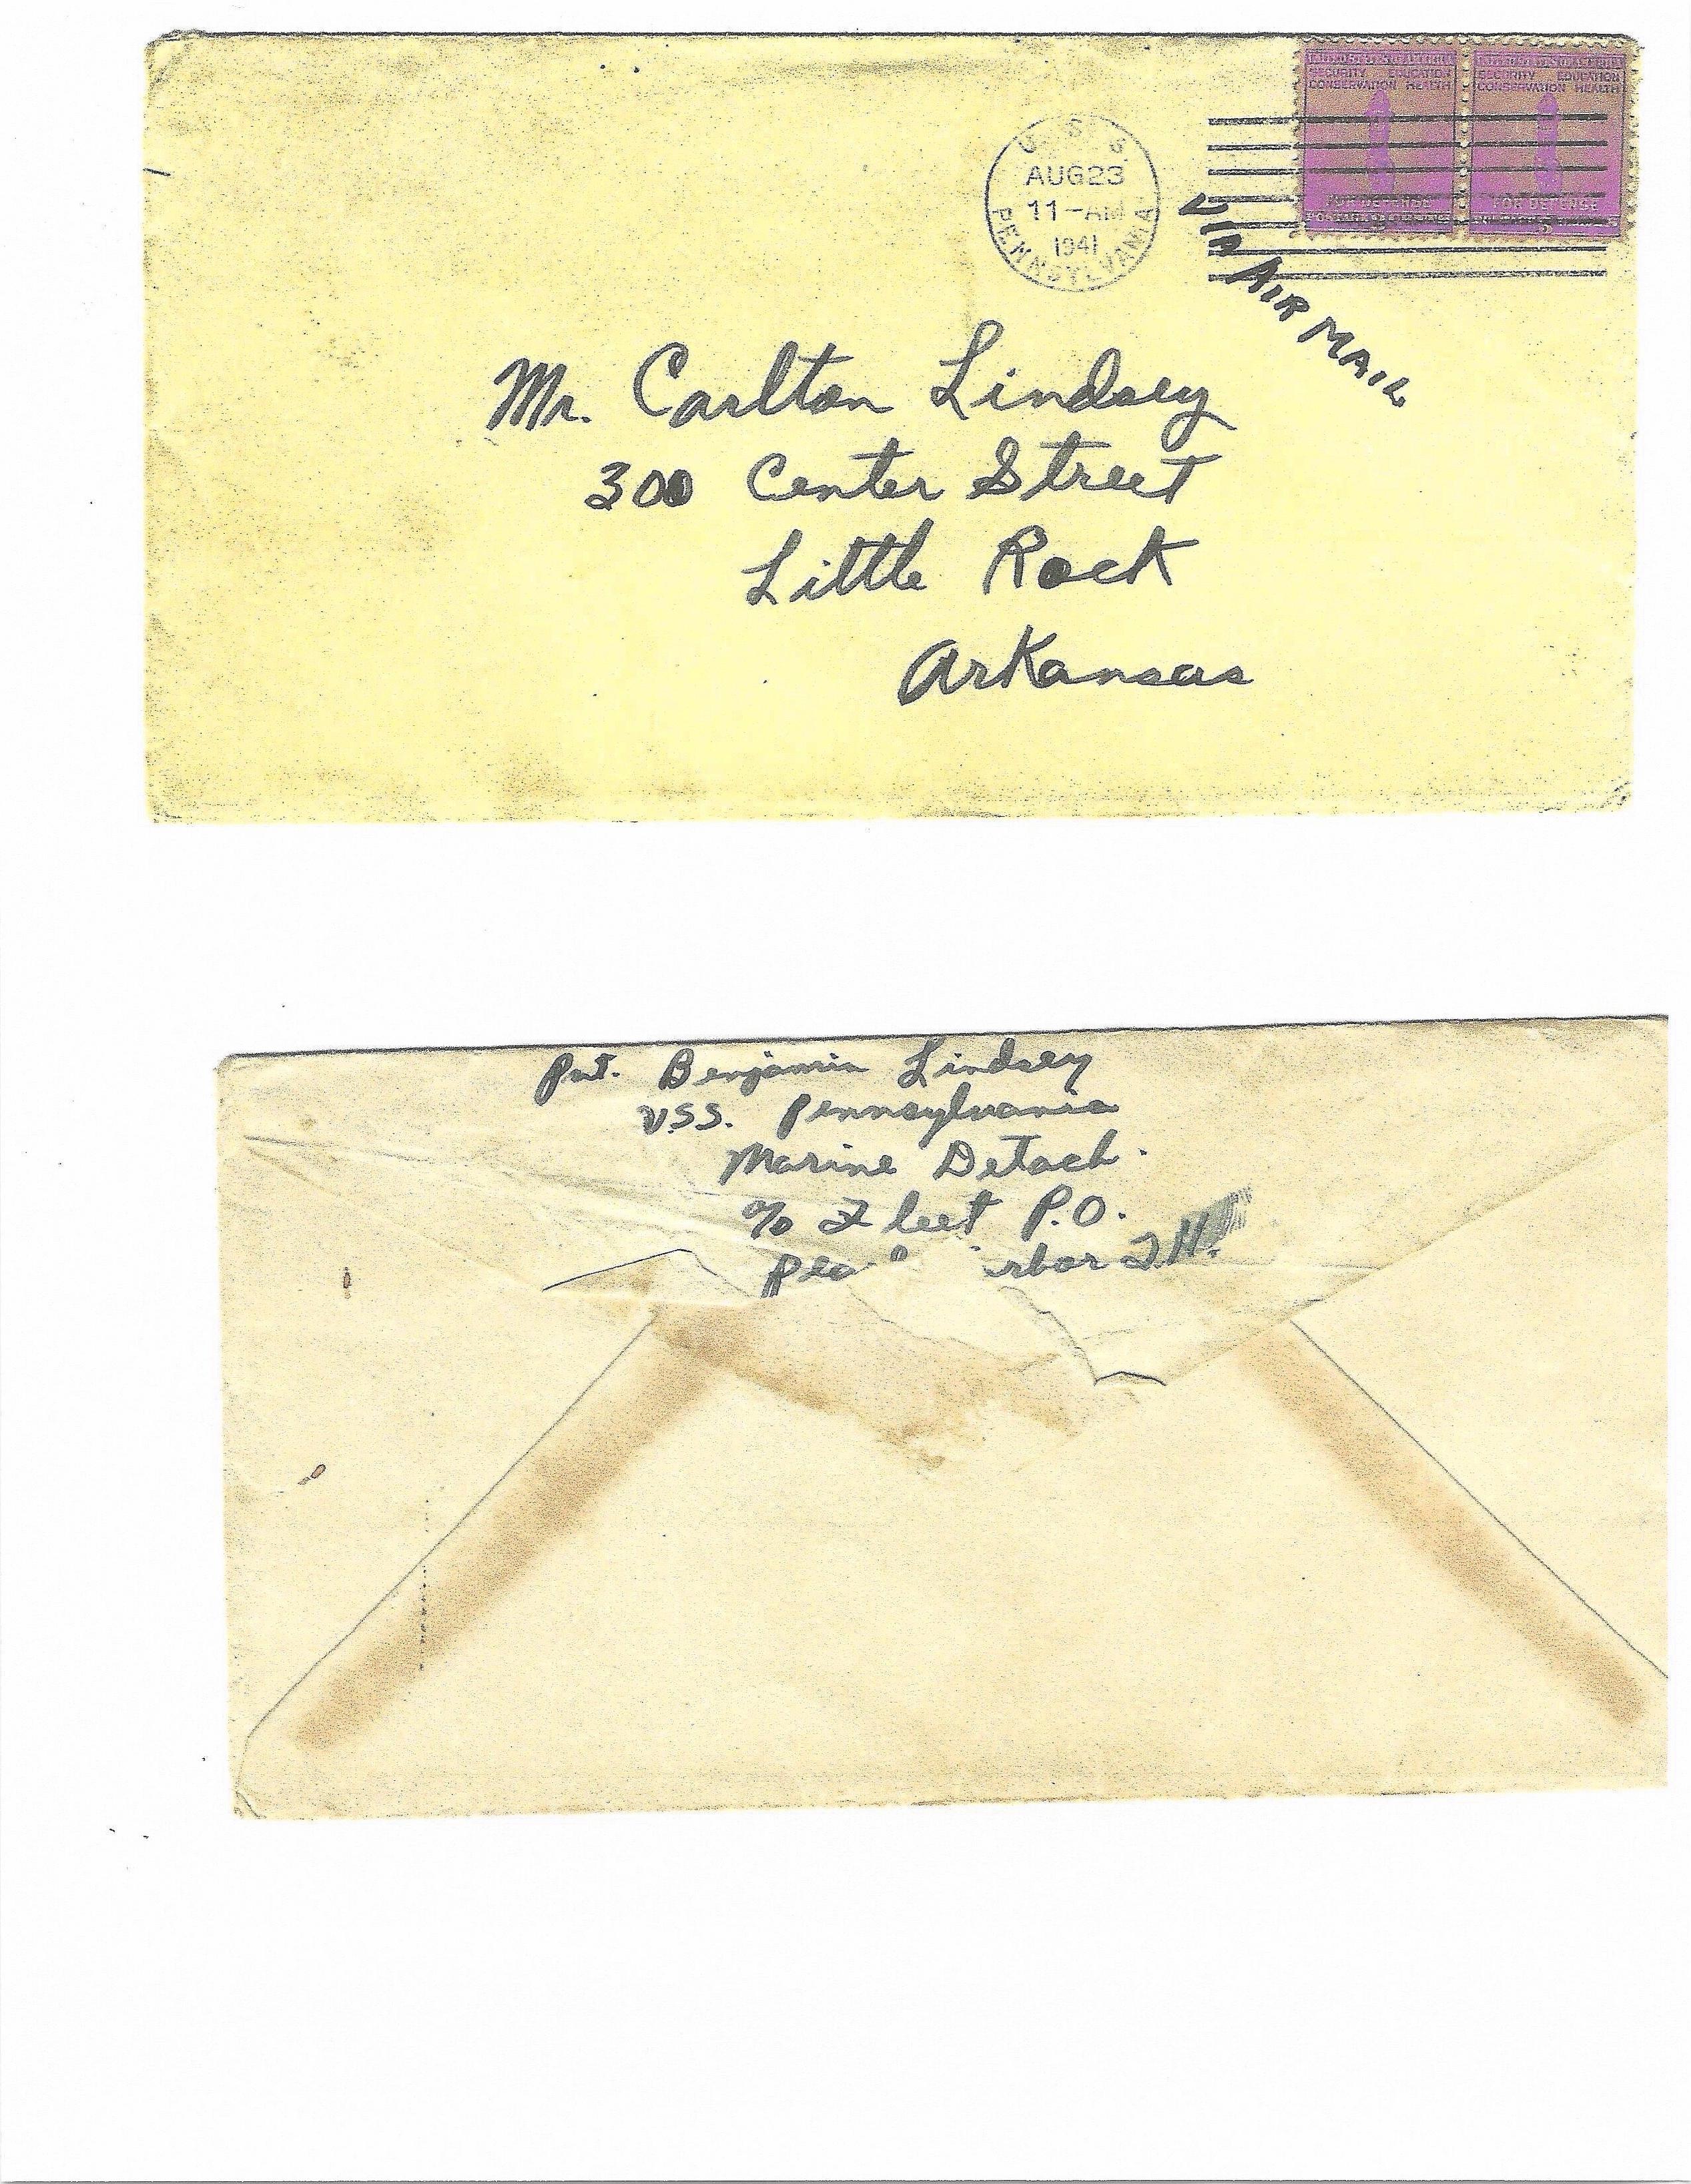 U. S. S.
AUG 23
11-AM
1941
PENNSYLVANIA
SECURITY EDUCATION
CONSERVATION HEALTH
FOR DEFENSE
SECURITY EDUCATION
CONSERVATION HEALTH
FOR DEFENSE
VIA AIR MAIL
Mr. Carlton Lindsey
300 Center Street
Little Rock
Arkansas
Pvt. Benjamin Lindsey
U.S.S. Pennsylvania
Marine Detach.
c/o Fleet P.O.
Pea rbor T.H.